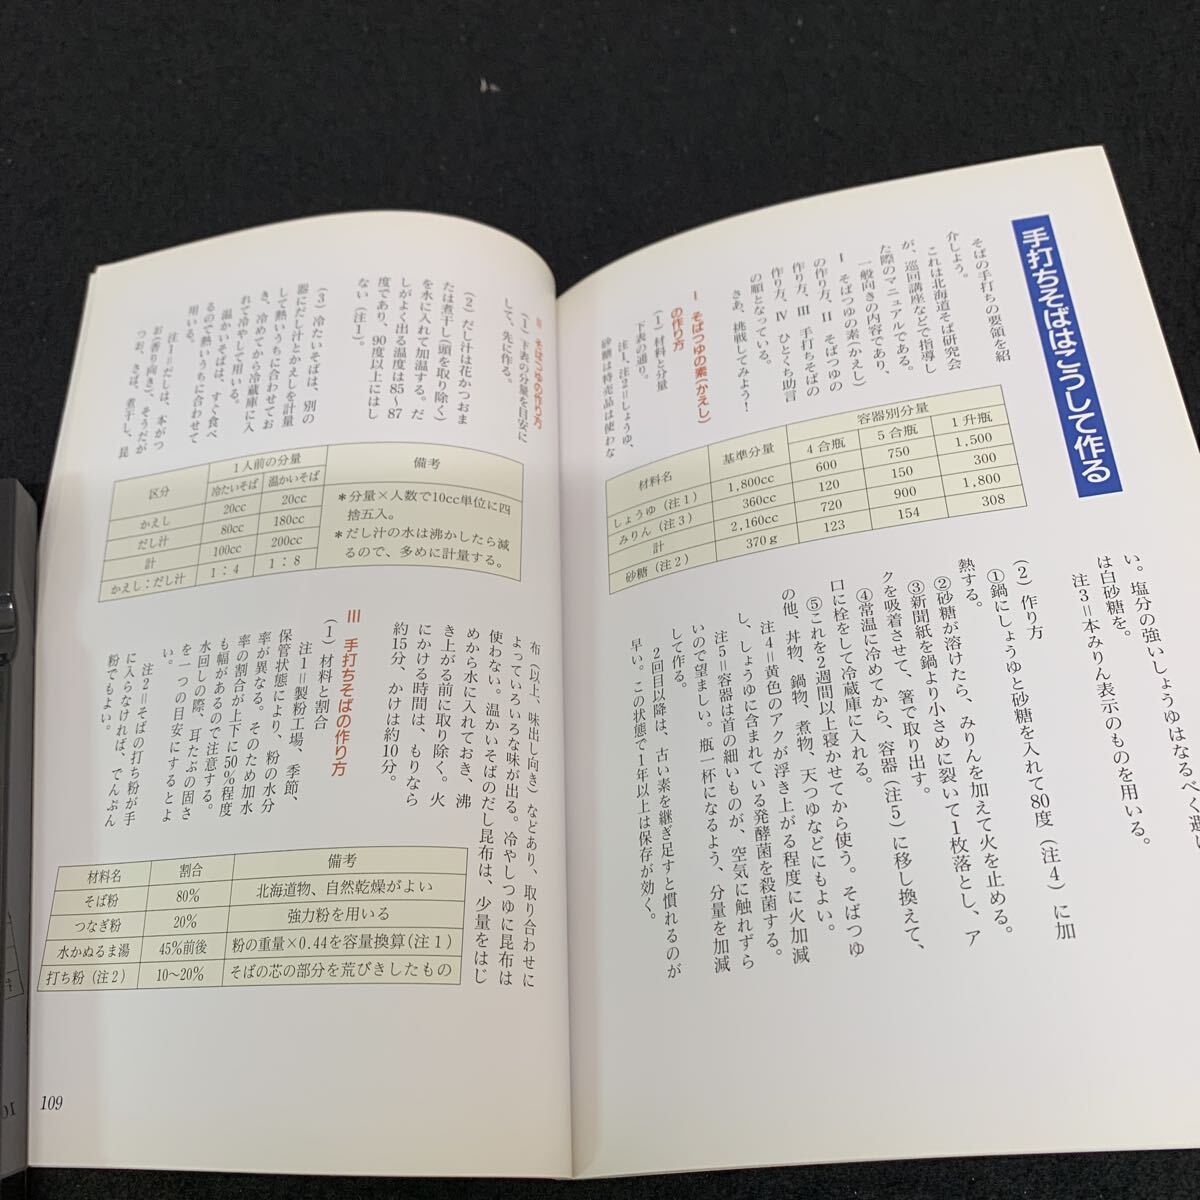 手打ちそばはこうして作る
そばの手打ちの要領を紹
介しよう。
これは北海道そば研究会
が、巡回講座などで指導し
た際のマニュアルである。
一般向きの内容であり、
Ⅰ そばつゆの素(かえし)
の作り方、Ⅱ そばつゆの
作り方、Ⅲ 手打ちそばの
作り方、Ⅳ ひとくち助言
の順となっている。
さあ、挑戦してみよう!
Ⅰ そばつゆの素(かえし)
の作り方
(1)材料と分量
下表の通り。
注1、注2=しょうゆ、
砂糖は特売品は使わな
材料名 基準分量 容器別分量
4合瓶 5合瓶 1升瓶
しょうゆ(注1) 1,800cc 600 750 1,500
みりん(注3) 360cc 120 150 300
計 2,160cc 720 900 1,800
砂糖(注2) 370g 123 154 308
い。塩分の強いしょうゆはなるべく避け
は白砂糖を。
注3=本みりん表示のものを用いる。
(2)作り方
①鍋にしょうゆと砂糖を入れて80度(注4)に加
熱する。
②砂糖が溶けたら、みりんを加えて火を止める。
③新聞紙を鍋より小さめに裂いて1枚落とし、ア
クを吸着させて、箸で取り出す。
④常温に冷めてから、容器(注5)に移し換えて、
口に栓をして冷蔵庫に入れる。
⑤これを2週間以上寝かせてから使う。そばつゆ
の他、丼物、鍋物、煮物、天つゆなどにもよい。
注4=黄色のアクが浮き上がる程度に火加減
し、しょうゆに含まれている発酵菌を殺菌する。
注5=容器は首の細いものが、空気に触れずら
いので望ましい。瓶一杯になるよう、分量を加減
して作る。
2回目以降は、古い素を継ぎ足すと慣れるのが
早い。この状態で1年以上は保存が効く。
Ⅱ そばつゆの作り方
(1)下表の分量を目安に
して、先に作る。
(2)だし汁は花かつおま
たは煮干し(頭を取り除く)
を水に入れて加温する。だ
しがよく出る温度は85~87
度であり、90度以上にはし
ない(注1)。
(3)冷たいそばは、別の
器にだし汁とかえしを計量
して熱いうちに合わせてお
き、冷めてから冷蔵庫に入
れて冷やして用いる。
温かいそばは、すぐ食べ
るので熱いうちに合わせて
用いる。
注1=だしは、本がつ
お(香り向き)、そうだが
つお、さば、煮干し、昆
区分 1人前の分量 備考
冷たいそば 温かいそば
かえし 20cc 20cc
だし汁 80cc 180cc
計 100cc 200cc
かえし:だし汁 1:4 1:8
*分量×人数で10cc単位に四
捨五入。
*だし汁の水は沸かしたら減
るので、多めに計量する。
布(以上、味出し向き)などあり、取り合わせに
よっていろいろな味が出る。冷やしつゆに昆布は
使わない。温かいそばのだし昆布は、少量をはじ
めから水に入れておき、沸
き上がる前に取り除く。火
にかける時間は、もりなら
約15分、かけは約10分。
Ⅲ 手打ちそばの作り方
(1)材料と割合
注1=製粉工場、季節、
保管状態により、粉の水分
率が異なる。そのため加水
率の割合が上下に50%程度
も幅があるので注意する。
水回しの際、耳たぶの固さ
を一つの目安にするとよ
い。
注2=そばの打ち粉が手
に入らなければ、でんぷん
粉でもよい。
材料名 割合 備考
そば粉 80% 北海道物、自然乾燥がよい
つなぎ粉 20% 強力粉を用いる
水かぬるま湯 45%前後 粉の重量×0.44を容量換算(注1)
打ち粉(注2) 10〜20% そばの芯の部分を荒びきしたもの
109